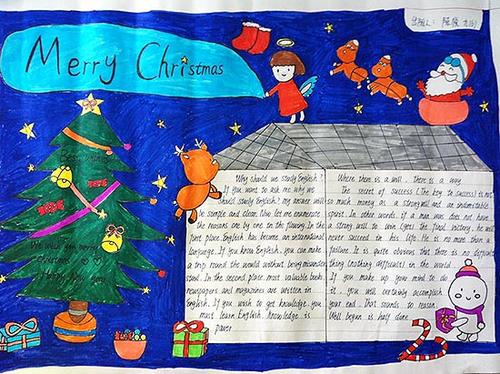 Merry Christmas
We wish you merry
Christmas
Happy New
Why should we study English?
If you want to ask me why we
should study English? my answer will
be simple and clear. Now let me enumerate
the reasons one by one in the fluency. In the
first place English has become an international
language. If you know English, you can make
a trip round the world without being misunder
stood. In the second place most valuable books,
newspapers and magazines are written in
English. If you wish to get knowledge, you
must learn English. knowledge is
power
Where there is a will, there is a way
The secret of success (The key to success) is not
so much money as a strong will and an indomitable
spirit. In other words if a man was does not have
a strong will to win (get) the final victory, he will
never succeed in his life. He is no more than a
failure. It is quite obvious that there is no difficult
thing (nothing difficult) in the world
If you make up your mind to do
it, you will certainly accomplish
your end. That sounds to reason.
Well begun is half done.